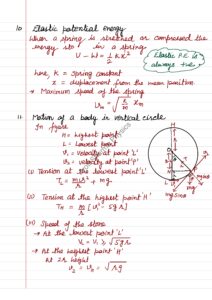 10. Elastic potential energy
When a spring is stretched or compressed the
energy sto in a spring.
U = W = 1/2 Kx²
Elastic P.E. is
always +ve.
here, K = Spring constant
x = displacement from the mean position
→ Maximum speed of the spring
Vm = √(K/m) xm
11. Motion of a body in vertical circle
In figure
H = highest point
L = Lowest point
V₁ = velocity at point 'L'
V₂ = velocity at point 'P'
(i) Tension at the lowest point 'L'
TL = mV₁²/r + mg
(ii) Tension at the highest point 'H'
TH = m/r [V₁² - 5gr]
(iii) Speed of the stone
→ At the lowest point 'L'
VL = V₁ ≥ √5gr
→ At the heighest point 'H'
at 2r height
V₂ = VH = √rg
H
O
P
L
T
mg
mg sinθ